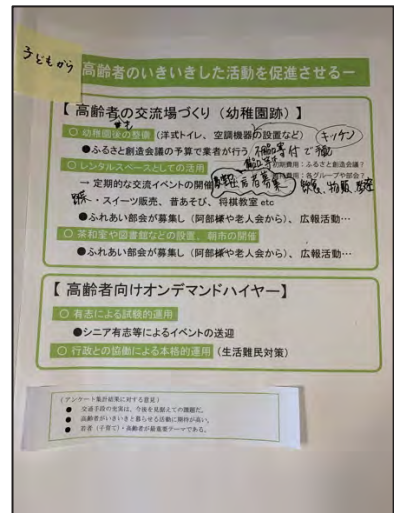 子どもから
高齢者のいきいきした活動を促進させるー
【 高齢者の交流場づくり（幼稚園跡）】
○ 幼稚園後の整備（洋式トイレ、空調機器の設置など）
キッチン
●ふるさと創造会議の予算で業者が行う
初期費用：ふるさと創造会議？
○ レンタルスペースとしての活用
費用：各グループや部会？
→ 定期的な交流イベントの開催
・スイーツ販売、昔あそび、将棋教室 etc
●ふれあい部会が募集し（阿部様や老人会から）、広報活動…
○ 茶和室や図書館などの設置、朝市の開催
●ふれあい部会が募集し（阿部様や老人会から）、広報活動…
【 高齢者向けオンデマンドハイヤー】
○ 有志による試験的運用
●シニア有志等によるイベントの送迎
○ 行政との協働による本格的運用（生活難民対策）
（アンケート集計結果に対する意見）
● 交通手段の充実は、今後を見据えての課題だ。
● 高齢者がいきいきと暮らせる活動に期待が高い。
● 若者（子育て）・高齢者が最重要テーマである。